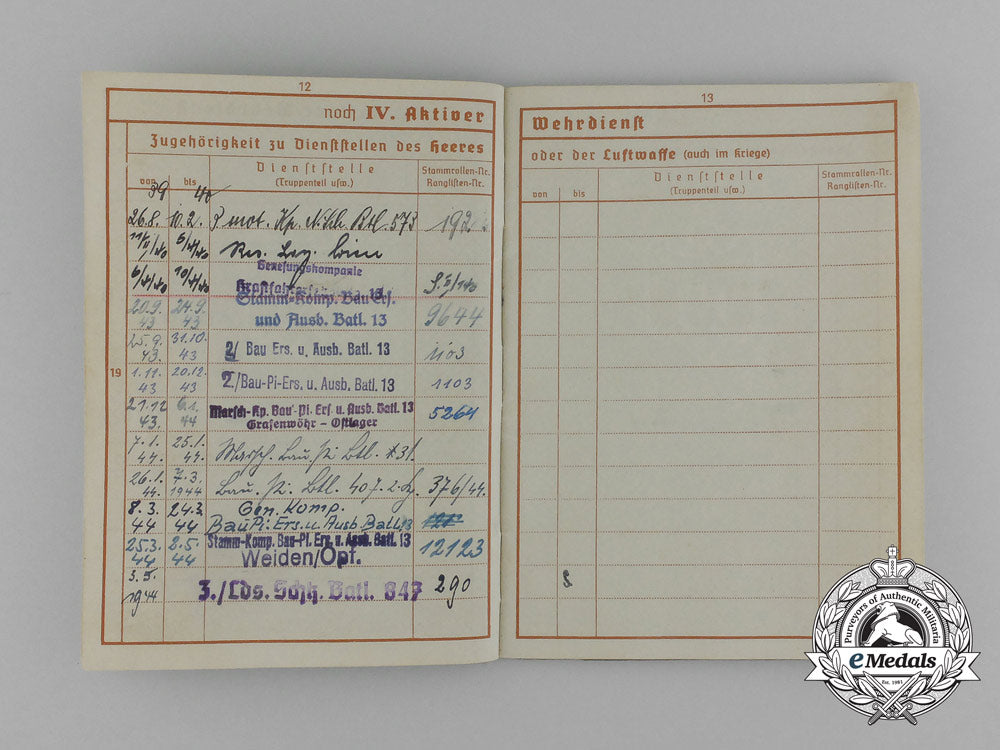 12
noch IV. Aktiver
Zugehörigkeit zu Dienststellen des Heeres
von bis Dienststelle (Truppenteil usw.) Stammrollen-Nr. Ranglisten-Nr.
39 40
26.8. 10.2. 3 mot. Kp. Btl. 573 192
11/II/40 5/4/40 Res. Laz.
6/4/40 10/4/40 Genesungskompanie
20.9. 43 24.9. 43 Stamm-Komp. Bau Ers. und Ausb. Batl. 13 9644
25.9. 43. 31.10. 43 2/ Bau Ers. u. Ausb. Batl. 13 1103
19
1.11. 43 20.12. 43 2./Bau-Pi-Ers. u. Ausb. Batl. 13 1103
21.12 43. 6.1. 44 Marsch-Kp. Bau-Pi. Ers u. Ausb. Batl. 13 5264
Grafenwöhr – Ostlager
7.1. 44. 25.1. 44. Marsch. Bau. Pi Btl.
26.1. 44. 7.3. 1944 Bau. Pi. Btl. 407. 376/44.
8.3. 44 24.3. 44 Gen. Komp.
Bau Pi. Ers. u. Ausb. Batl. 13
25.3. 44 2.5. 44 Stamm-Komp. Bau-Pi. Ers. u. Ausb. Batl. 13 12123
Weiden/Opf.
3.5. 1944 3./Lds. Schtz. Batl. 847 290
13
Wehrdienst
oder der Luftwaffe (auch im Kriege)
von bis Dienststelle (Truppenteil usw.) Stammrollen-Nr. Ranglisten-Nr.
Purveyors of Authentic Militaria
eMedals
Est. 1981